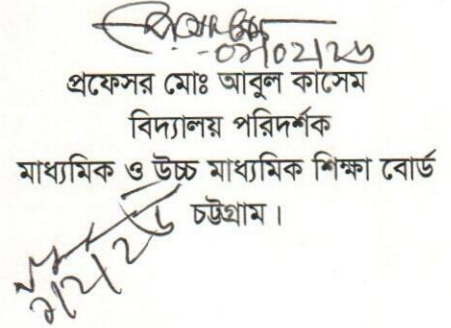 ০৭/০২/২৬
প্রফেসর মোঃ আবুল কাসেম
বিদ্যালয় পরিদর্শক
মাধ্যমিক ও উচ্চ মাধ্যমিক শিক্ষা বোর্ড
চট্টগ্রাম।